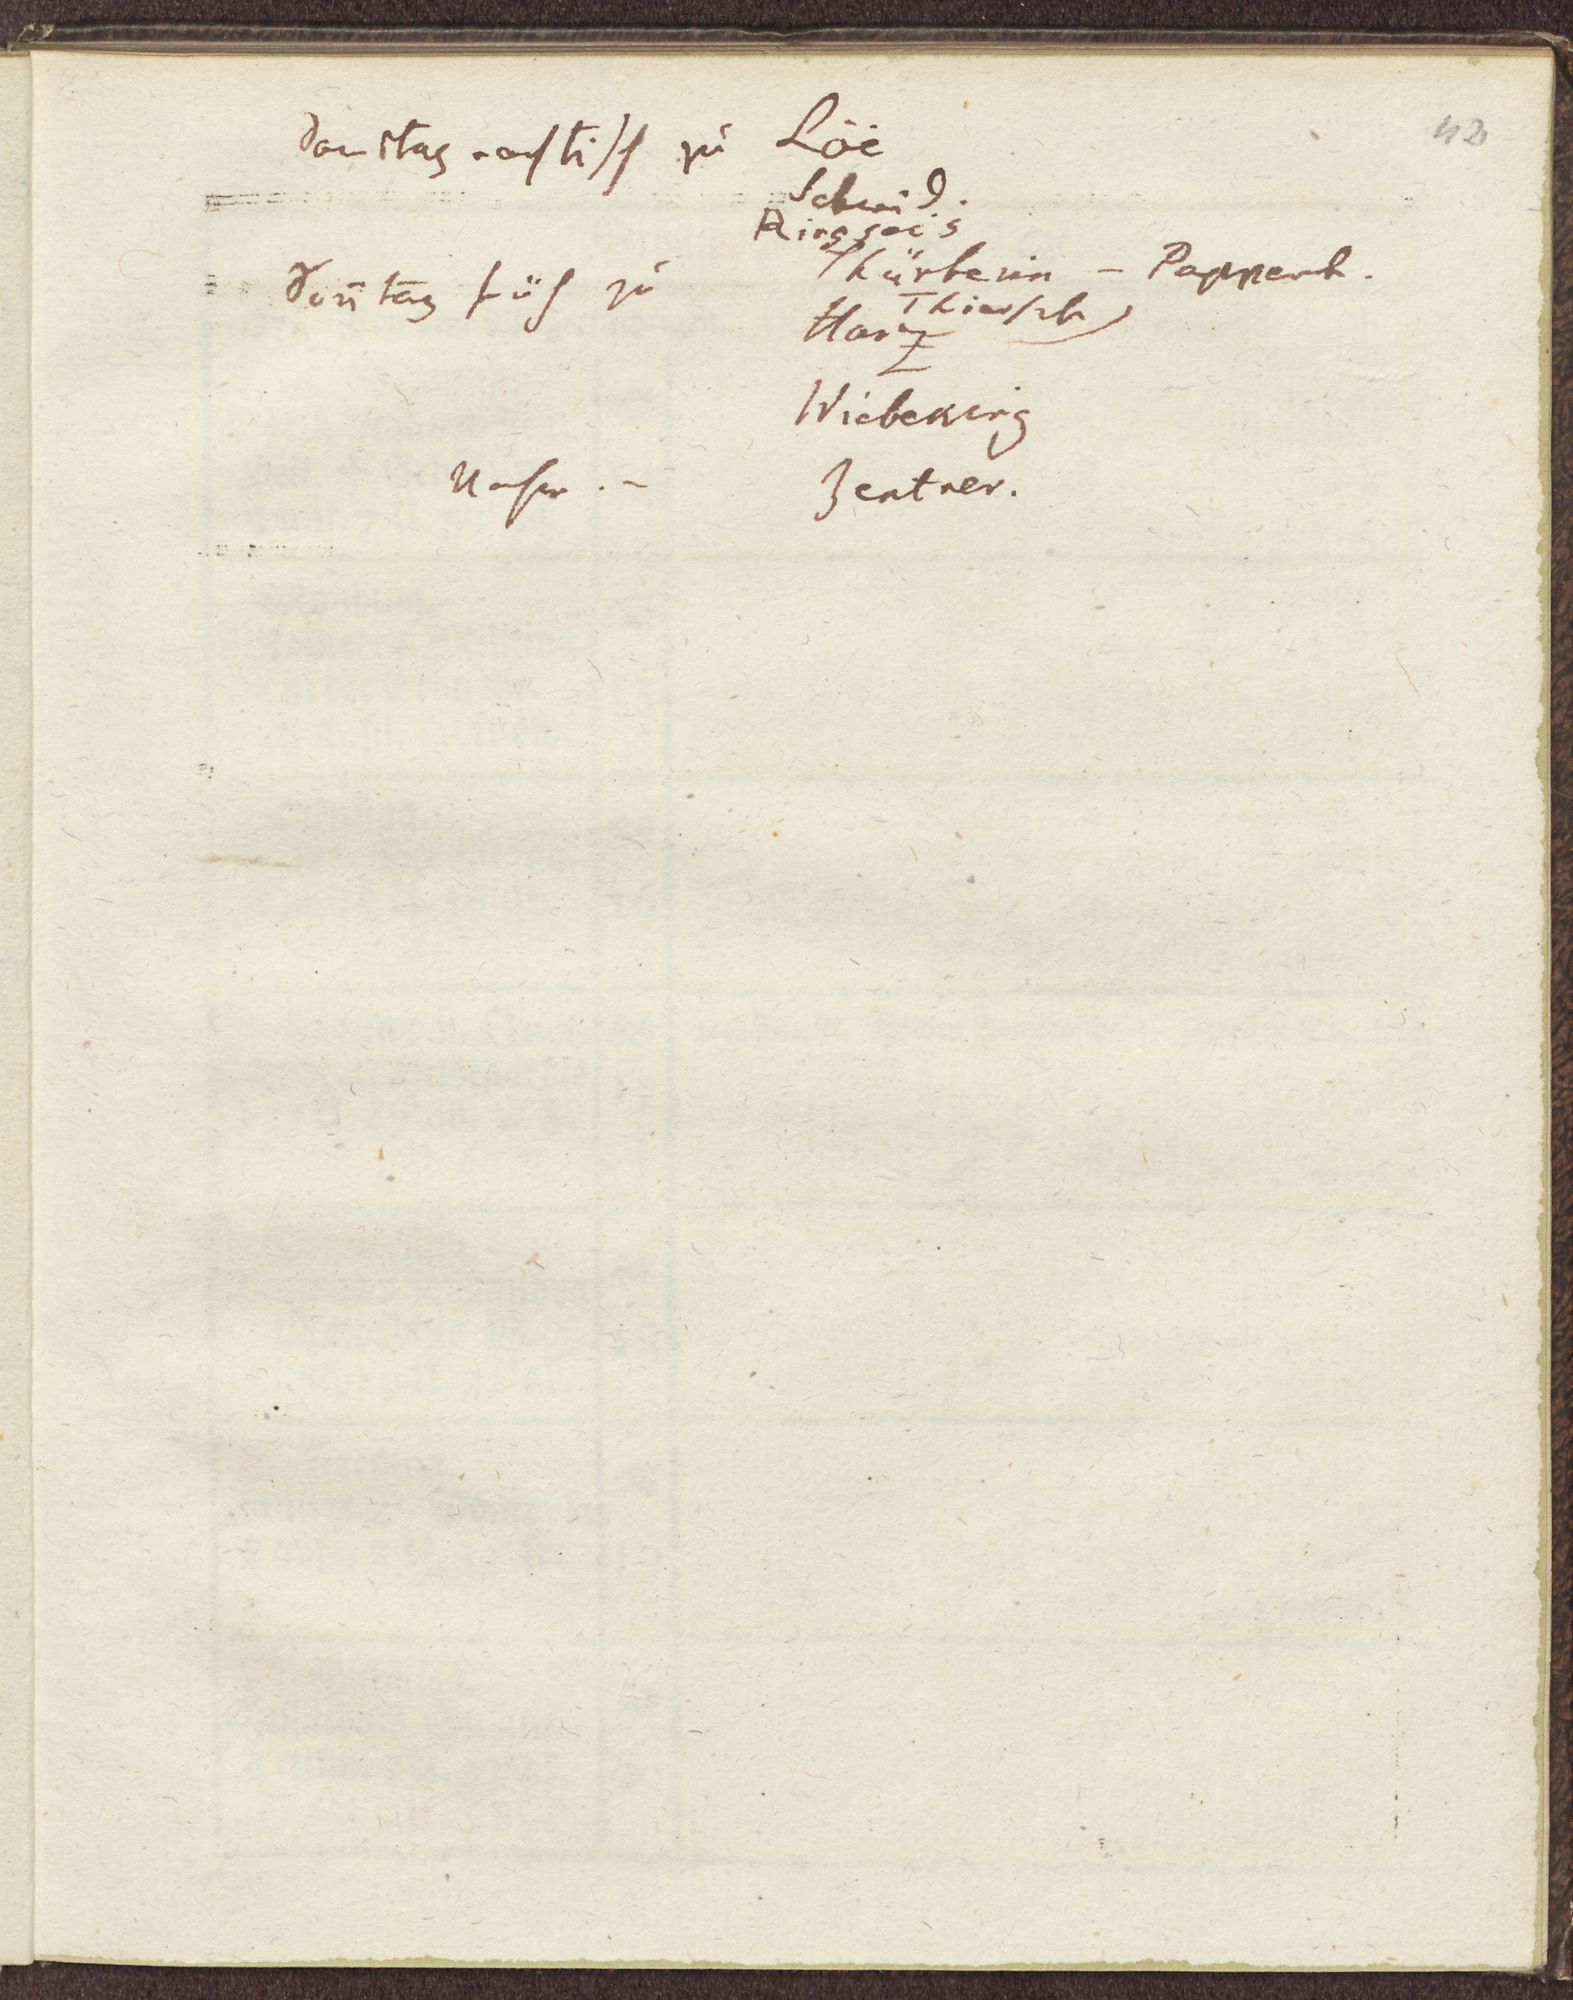 42
Samstag nach Tisch zu Löe
Schmid.
Ringseis
Sontag früh zu Thürheim – Pappenh.
Thiersch
Harz
Wiebeking
Zentner.